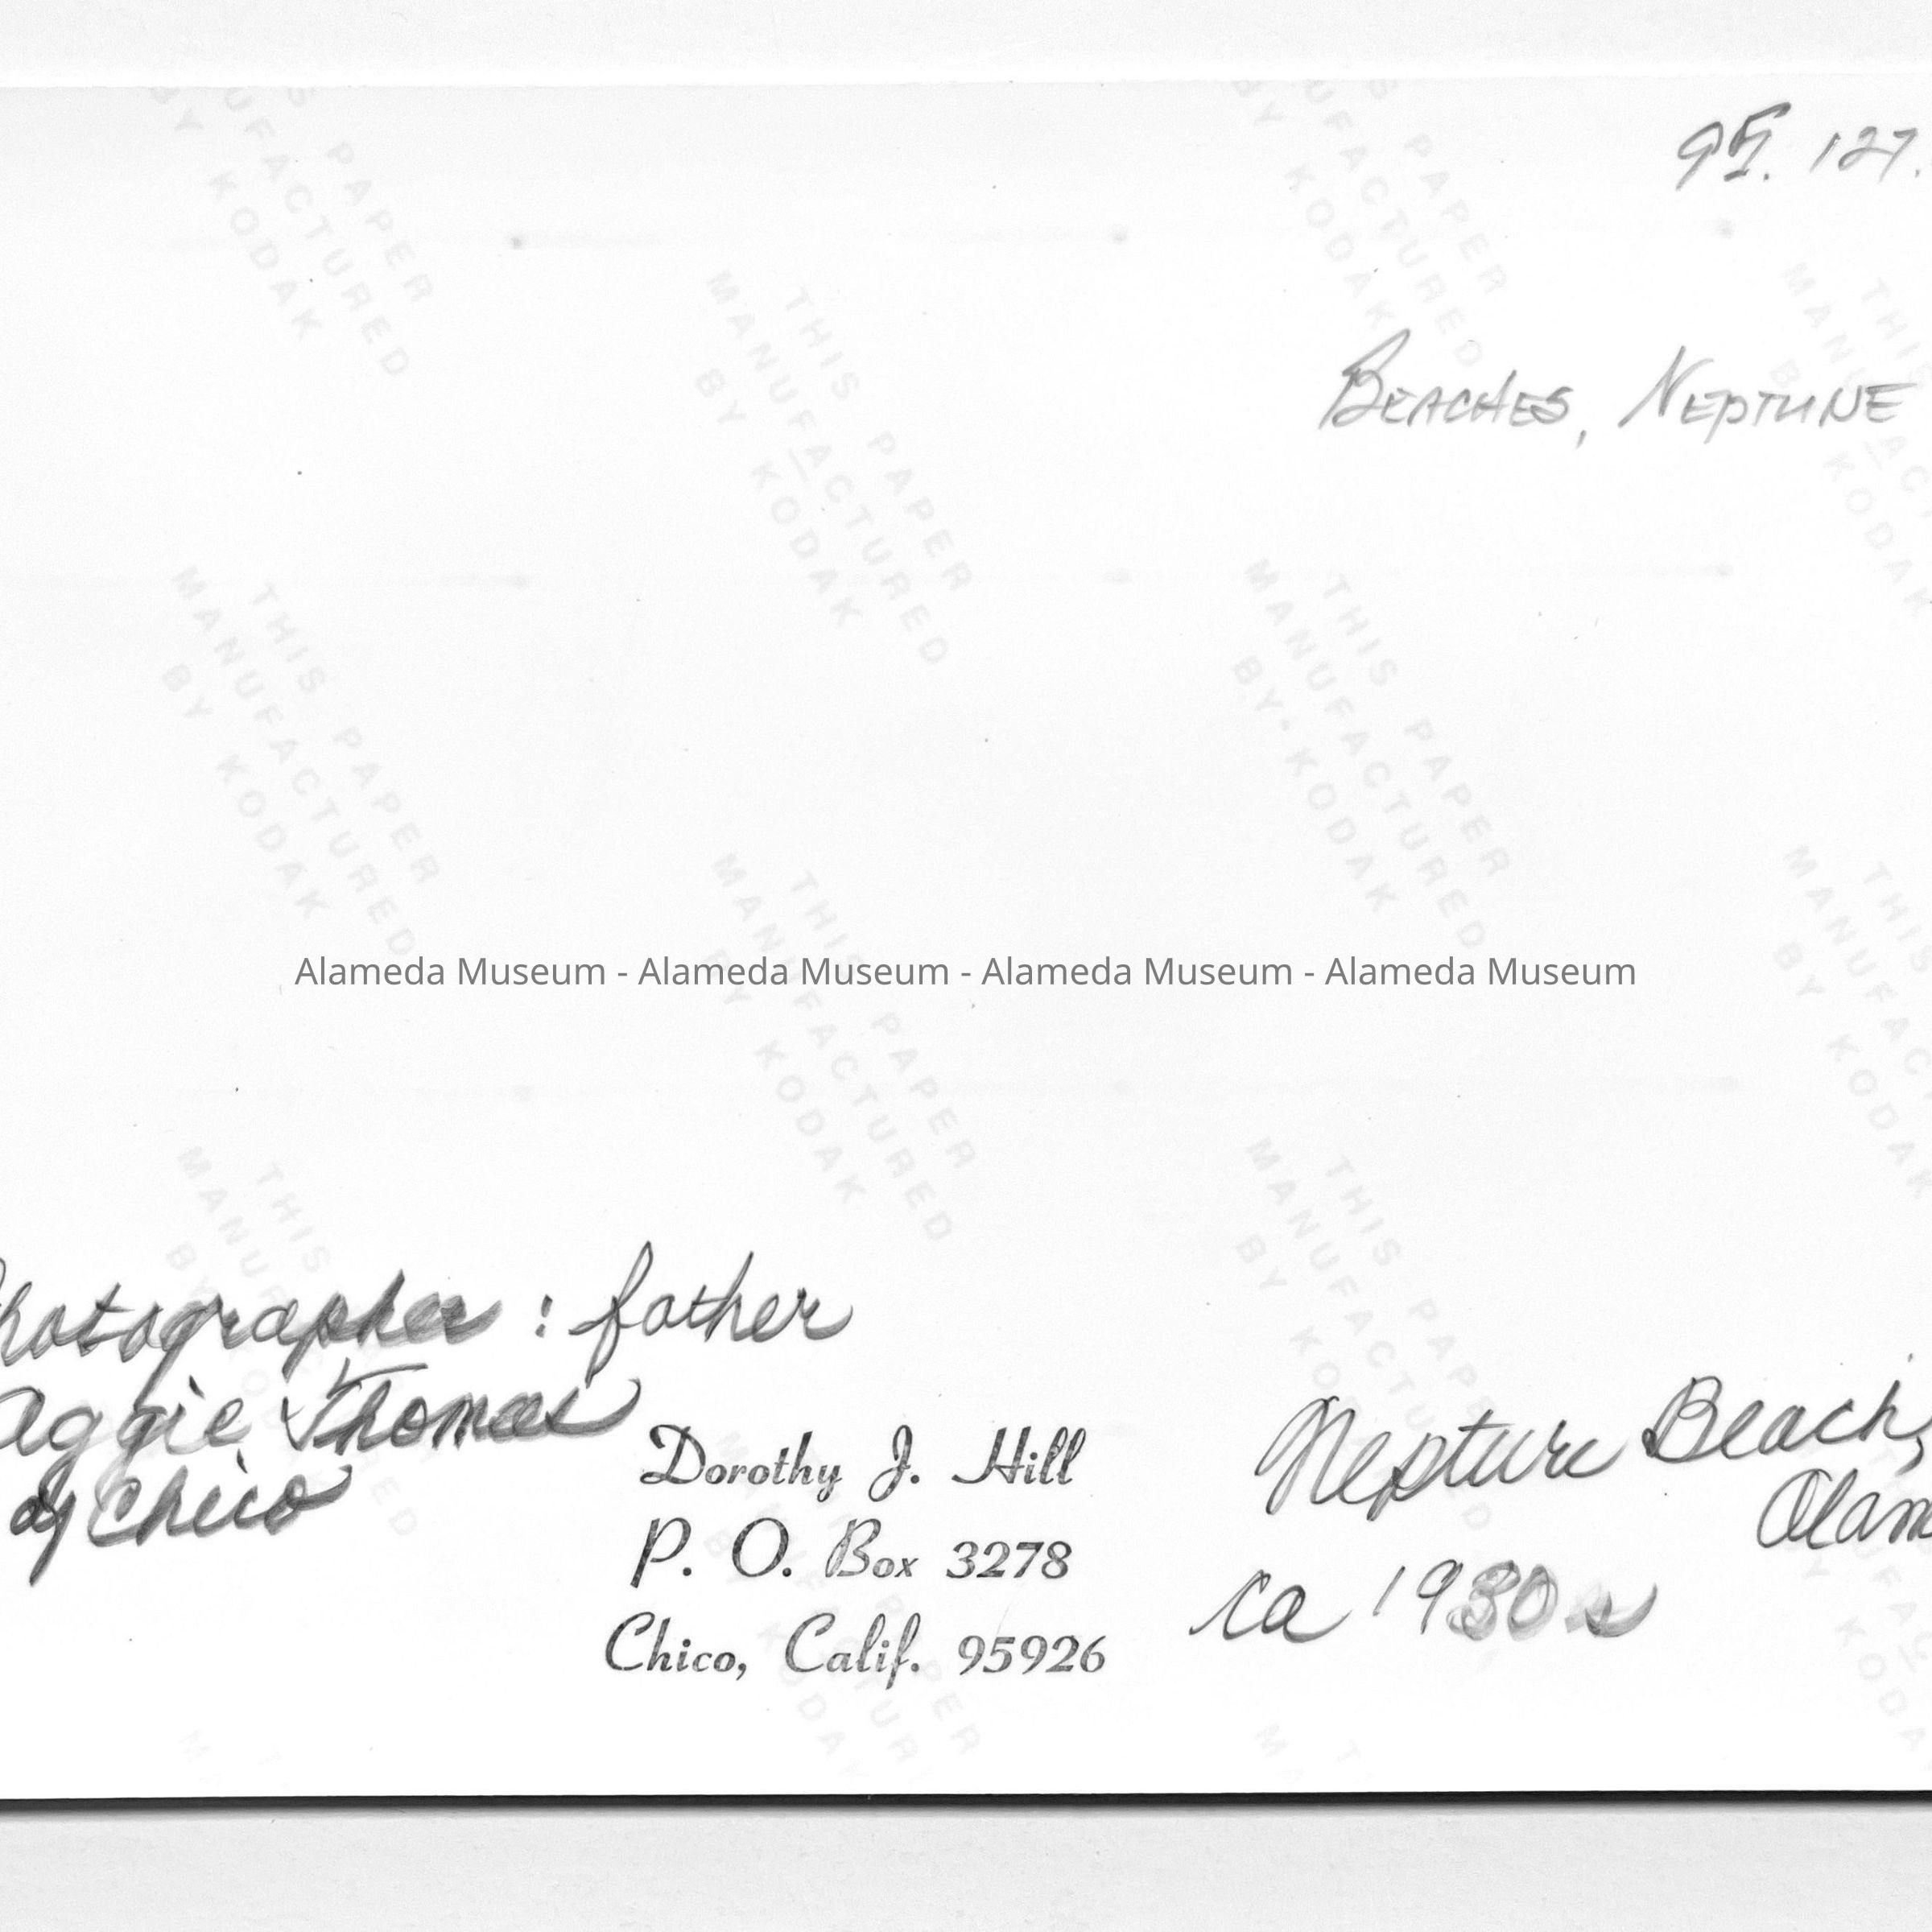 95. 127.
BEACHES, NEPTUNE
THIS PAPER
MANUFACTURED
BY KODAK
Alameda Museum - Alameda Museum - Alameda Museum - Alameda Museum
Photographer : father
Aggie Thomas
of Chico
Dorothy J. Hill
P. O. Box 3278
Chico, Calif. 95926
Neptune Beach,
Alam
ca 1930s